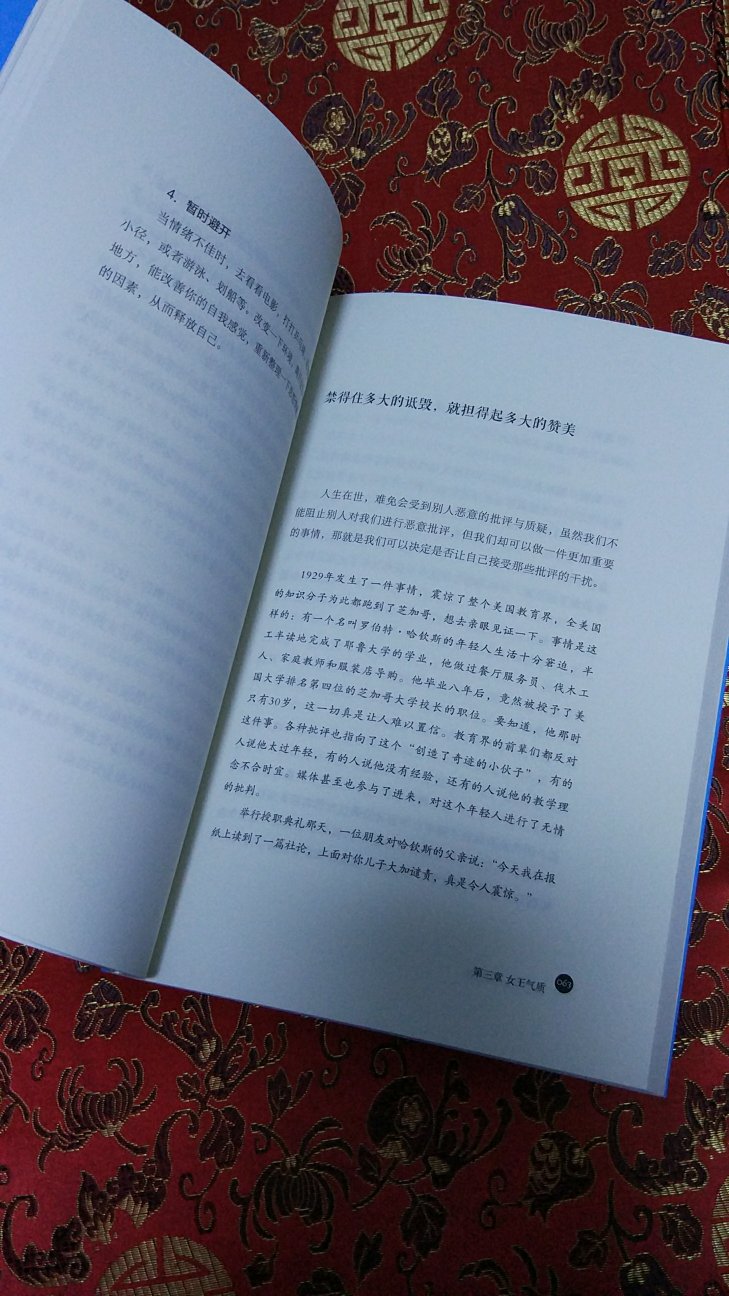 4. 暂时避开
当情绪不佳时，去看看电影，打打
小径，或者游泳、划船等。改变一下环境，
地方，能改善你的自我感觉，重新整理一下
的因素，从而释放自己。
禁得住多大的诋毁，就担得起多大的赞美
人生在世，难免会受到别人恶意的批评与质疑，虽然我们不
能阻止别人对我们进行恶意批评，但我们却可以做一件更加重要
的事情，那就是我们可以决定是否让自己接受那些批评的干扰。
1929年发生了一件事情，震惊了整个美国教育界，全美国
的知识分子为此都跑到了芝加哥，想去亲眼见证一下。事情是这
样的：有一个名叫罗伯特·哈钦斯的年轻人生活十分窘迫，半
工半读地完成了耶鲁大学的学业，他做过餐厅服务员、伐木工
人、家庭教师和服装店导购。他毕业八年后，竟然被授予了美
国大学排名第四位的芝加哥大学校长的职位。要知道，他那时
只有30岁，这一切真是让人难以置信。教育界的前辈们都反对
这件事。各种批评也指向了这个“创造了奇迹的小伙子”，有的
人说他太过年轻，有的人说他没有经验，还有的人说他的教学理
念不合时宜。媒体甚至也参与了进来，对这个年轻人进行了无情
的批判。
举行授职典礼那天，一位朋友对哈钦斯的父亲说：“今天我在报
纸上读到了一篇社论，上面对你儿子大加谴责，真是令人震惊。”
第三章 女王气质 063